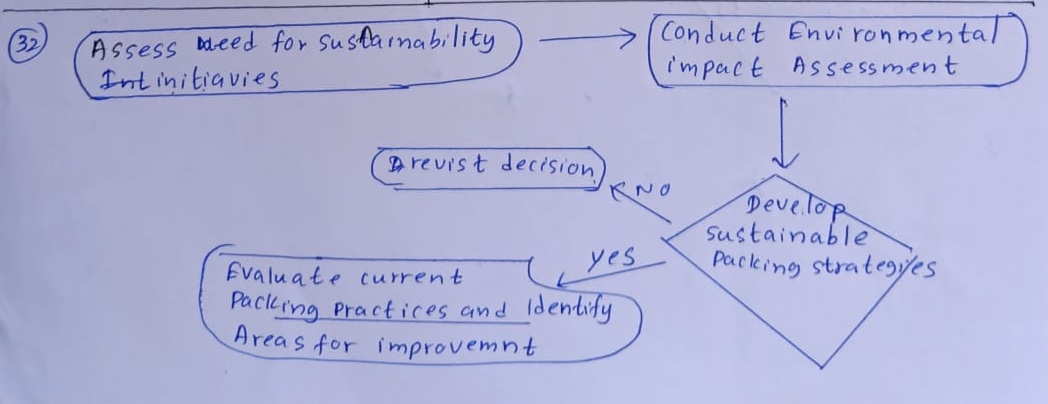 32
Assess need for sustainability
Intinitiavies
Conduct Environmental
impact Assessment
revist decision
NO
Develop
sustainable
Packing strategies
yes
Evaluate current
Packing Practices and Identify
Areas for improvemnt